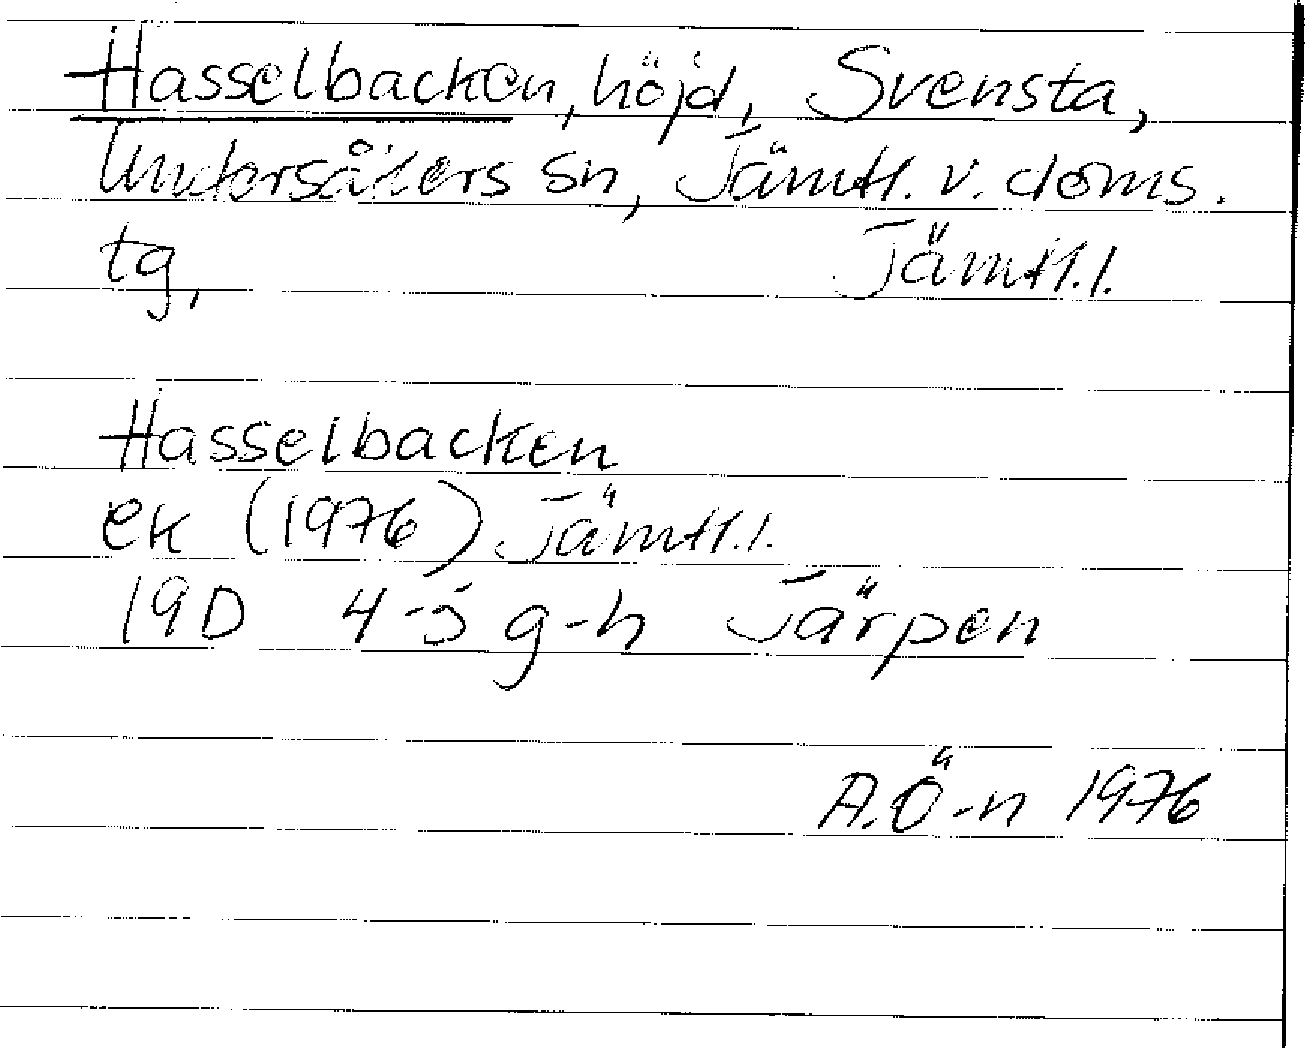 Hasselbacken, höjd, Svensta,
Undersåkers sn, Jämtl. v. doms.
tg, Jämtl. l.
Hasselbacken
ek (1976) Jämtl. l.
19D 4-5 g-h Järpen
A. Ö-n 1976